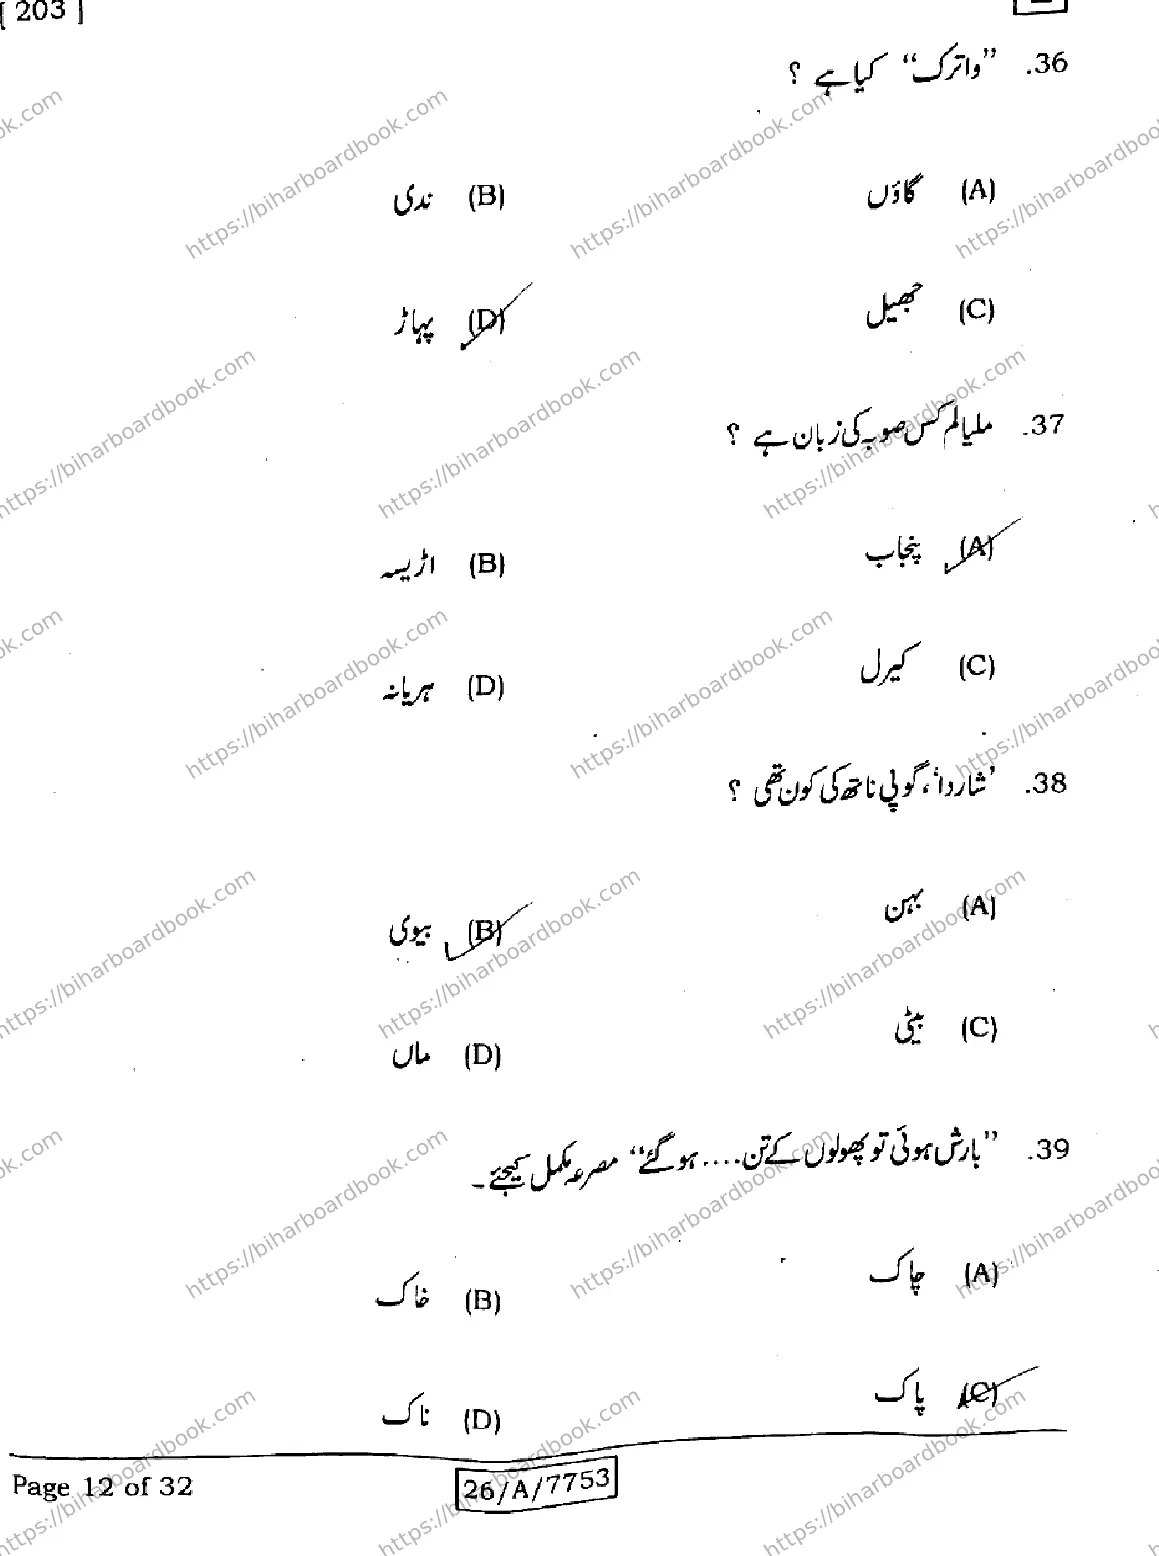 [ 203 ]
36. ”واترک“ کیا ہے ؟
(A) گاؤں (B) ندی
(C) جھیل (D) پہاڑ
37. ملیالم کس صوبہ کی زبان ہے ؟
(A) پنجاب (B) اڑیسہ
(C) کیرل (D) ہریانہ
38. ’شاردا‘، گوپی ناتھ کی کون تھی ؟
(A) بہن (B) بیوی
(C) بیٹی (D) ماں
39. ”بارش ہوئی تو پھولوں کے تن .... ہو گئے“ مصرعہ مکمل کیجئے ۔
(A) چاک (B) خاک
(C) پاک (D) ناک
Page 12 of 32
26/A/7753
https://biharboardbook.com